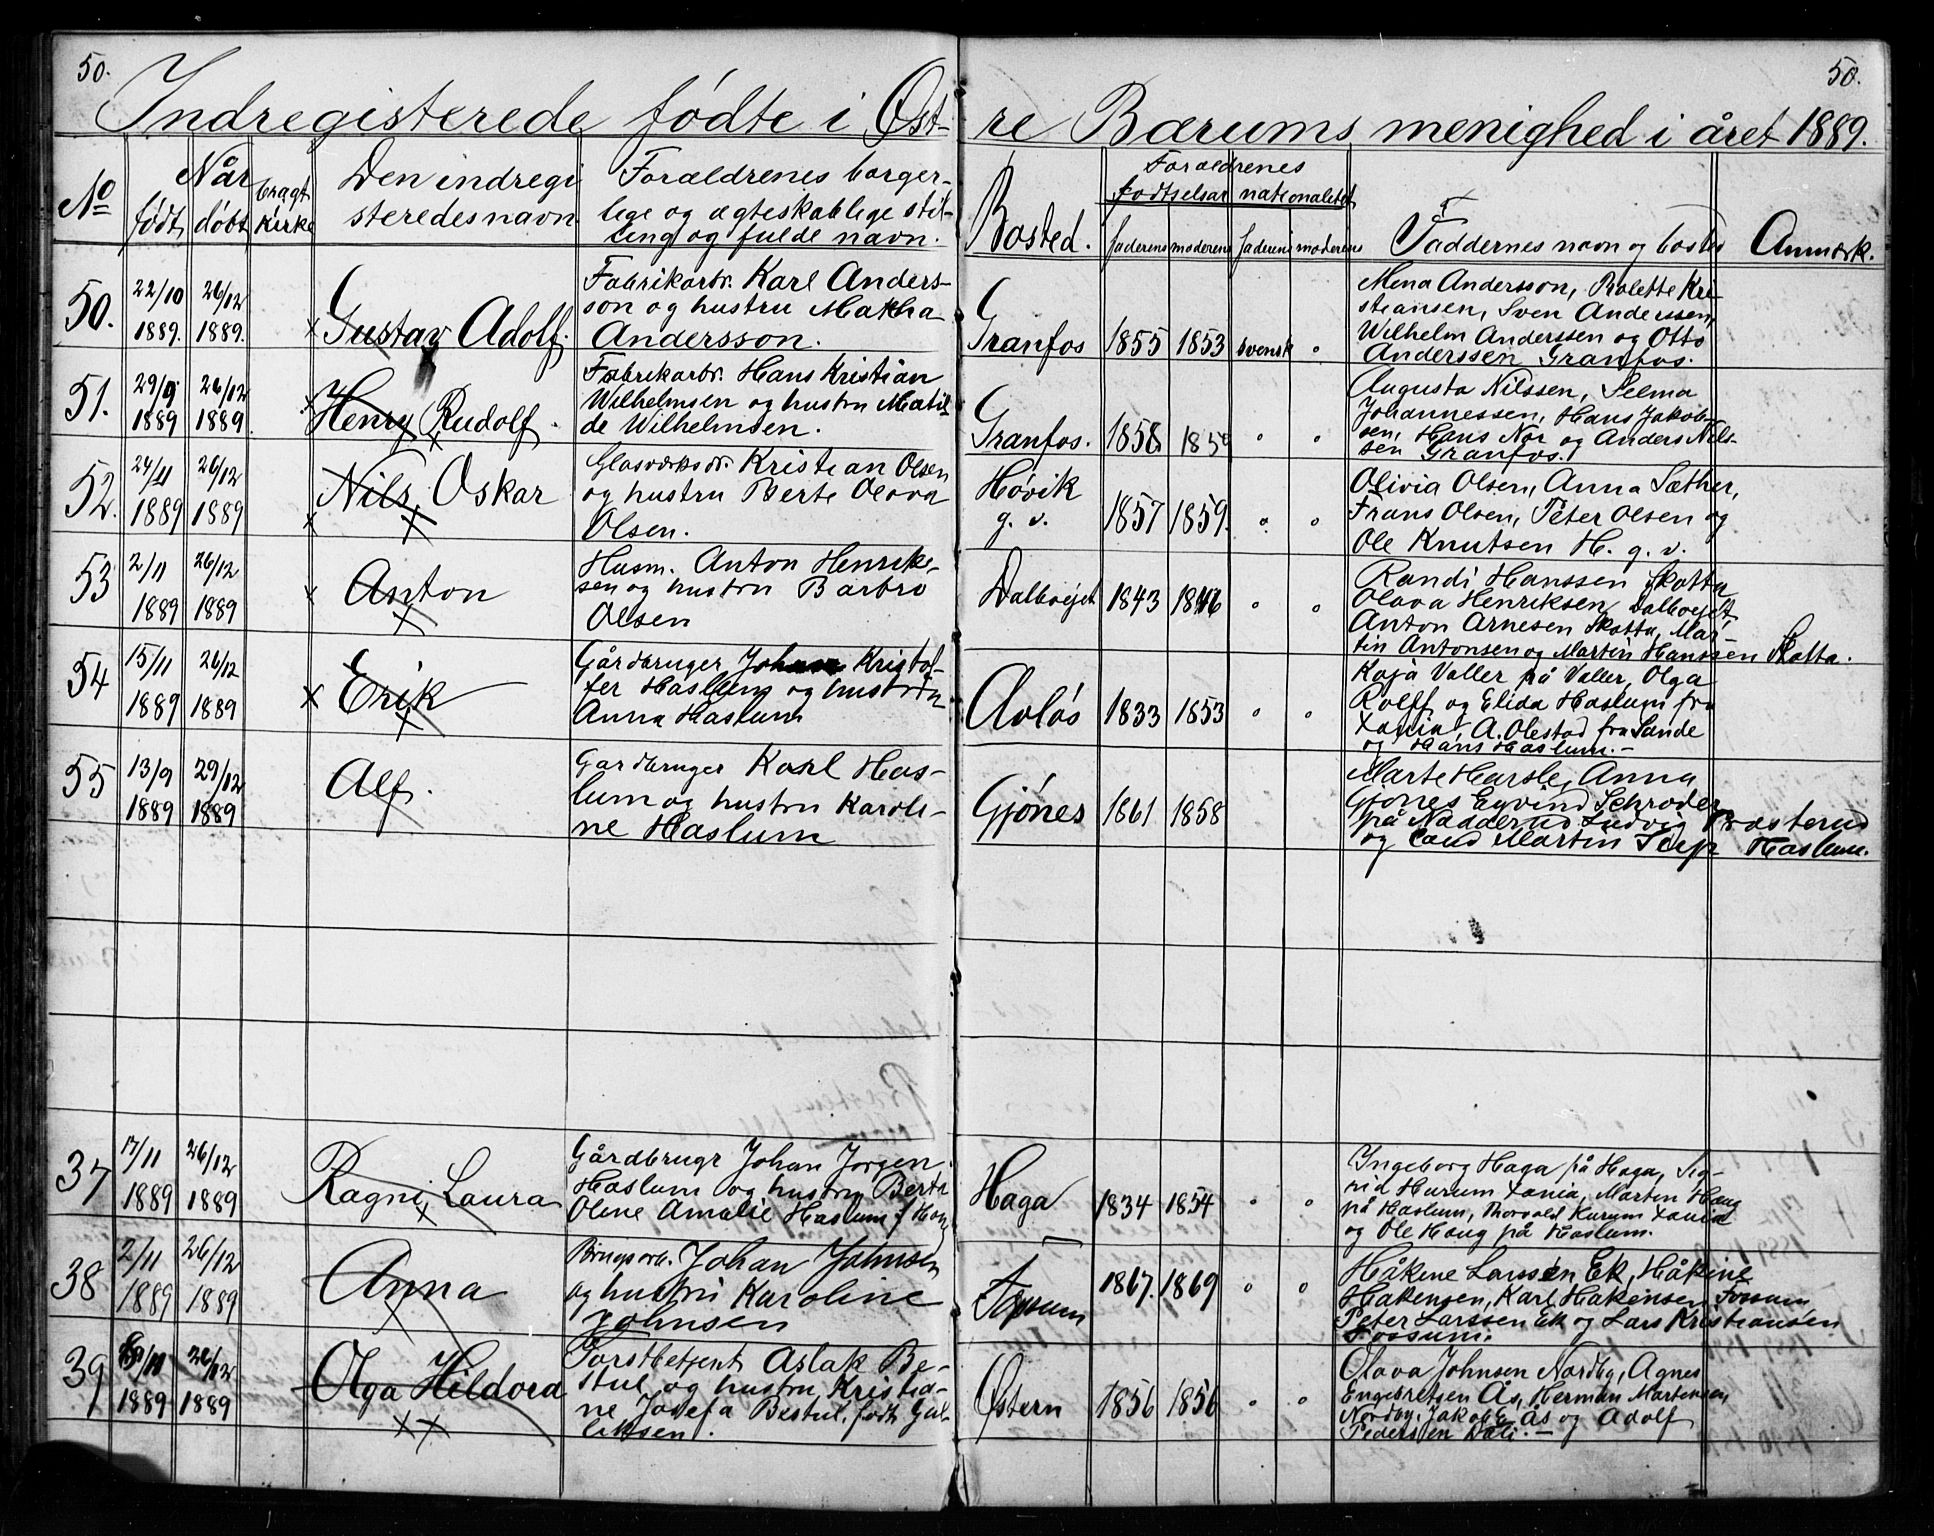 50.
50.
Indregisterede fødte i Øst-
re Bærums menighed i året 1889.
No
Når
født
døbt
bragt
kirke
Den indregi
steredes navn
Forældrenes borger-
lige og ægteskablige stil-
ling og fulde navn.
Bosted.
Forældrenes
fødselsår
nationalitet
faderens
moderens
faderens
moderens
Faddernes navn og bosted
Anmærk.
50.
22/10
1889.
26/12
1889.
Gustav Adolf.
Fabrikarb. Karl Anders-
son og hustru
Andersson.
Granfos
1855
1853
svensk
"
Mena Andersson, Kri-
stiansen, Sven Anderssen,
Wilhelm Anderssen og Otto
Anderssen Granfos.
51.
29/9
1889
26/12
1889.
Henry Rudolf.
Fabrikarb. Hans Kristian
Wilhelmsen og hustru Matil
de Wilhelmsen.
Granfos.
1858
"
"
Augusta Nilssen, Selma
Johannessen, Hans Jakob-
sen, Hans Nor og Anders Nils-
sen Granfos.
52.
24/11
1889
26/12
1889
Nils Oskar
Glasværksarb. Kristian Olsen
og hustru Berte Olava
Olsen.
Høvik
g. v.
1857
1859.
"
"
Olivia Olsen, Anna Sæther,
Frans Olsen, Peter Olsen og
Ole Knutsen H. g. v.
53
2/11
1889
26/12
1889
Anton
Husm. Anton Henrik-
sen og hustru Barbro
Olsen
Dalbvejet
1843
1846
"
"
Randi Hanssen Skotta
Olava Henriksen Dalbvejet,
Anton Arnesen Skotta, Mar-
tin Antonsen og Martin Hanssen Skotta.
54
15/11
1889
26/12
1889
Erik
Gårdbruger Kristof-
fer Haslum og hustru
Anna Haslum
Avløs
1833
1853
"
"
Kaja Valler på Valler, Olga
Rolff og Elida Haslum fra
Xania A. Olestad fra Sande
og Hans Haslum.-
55
13/9
1889
29/12
1889
Alf.
Gardbruger Karl Has-
lum og hustru Karoli-
ne Haslum
Gjønes
1861
1858
Marte Harsle, Anna
Gjønes Eyvind Schrøder
på Nadderud Ludvig Præsterud
og Cand Martin Haslum.
37
17/11
1889
26/12
1889
Ragni Laura
Gårdbrugr Johan Jørgen
Haslum og hustru Berte
Oline Amalie Haslum f. Haug
Haga
1834
1854
"
"
Ingeborg Haga på Haga, Sig-
rid Hurum Xania, Martin Haug
på Haslum, Thorvald Hurum Xania
og Ole Haug på Haslum.
38
2/11
1889
26/12
1889
Anna
Brugsarb. Johan Johnsen
og hustru Karoline
Johnsen
Fossum
1867.
1869
"
"
Håkine Larssen Ek, Håkine
Håkensen, Karl Håkensen Fossum
Peter Larssen Ek og Lars Kristiansen
Fossum.
39
1889
26/12
1889
Olga Hildora
Forstbetjent Aslak Be-
stul og hustru Kristia-
ne Josefa Bestul, født Gul-
liksen.
Østern
1856
1856
"
"
Olava Johnsen Nordby, Agnes
Engebretsen Ås, Herman Martensen
Nordby, Jakob E. Ås og Adolf
Pedersen Dæli.-